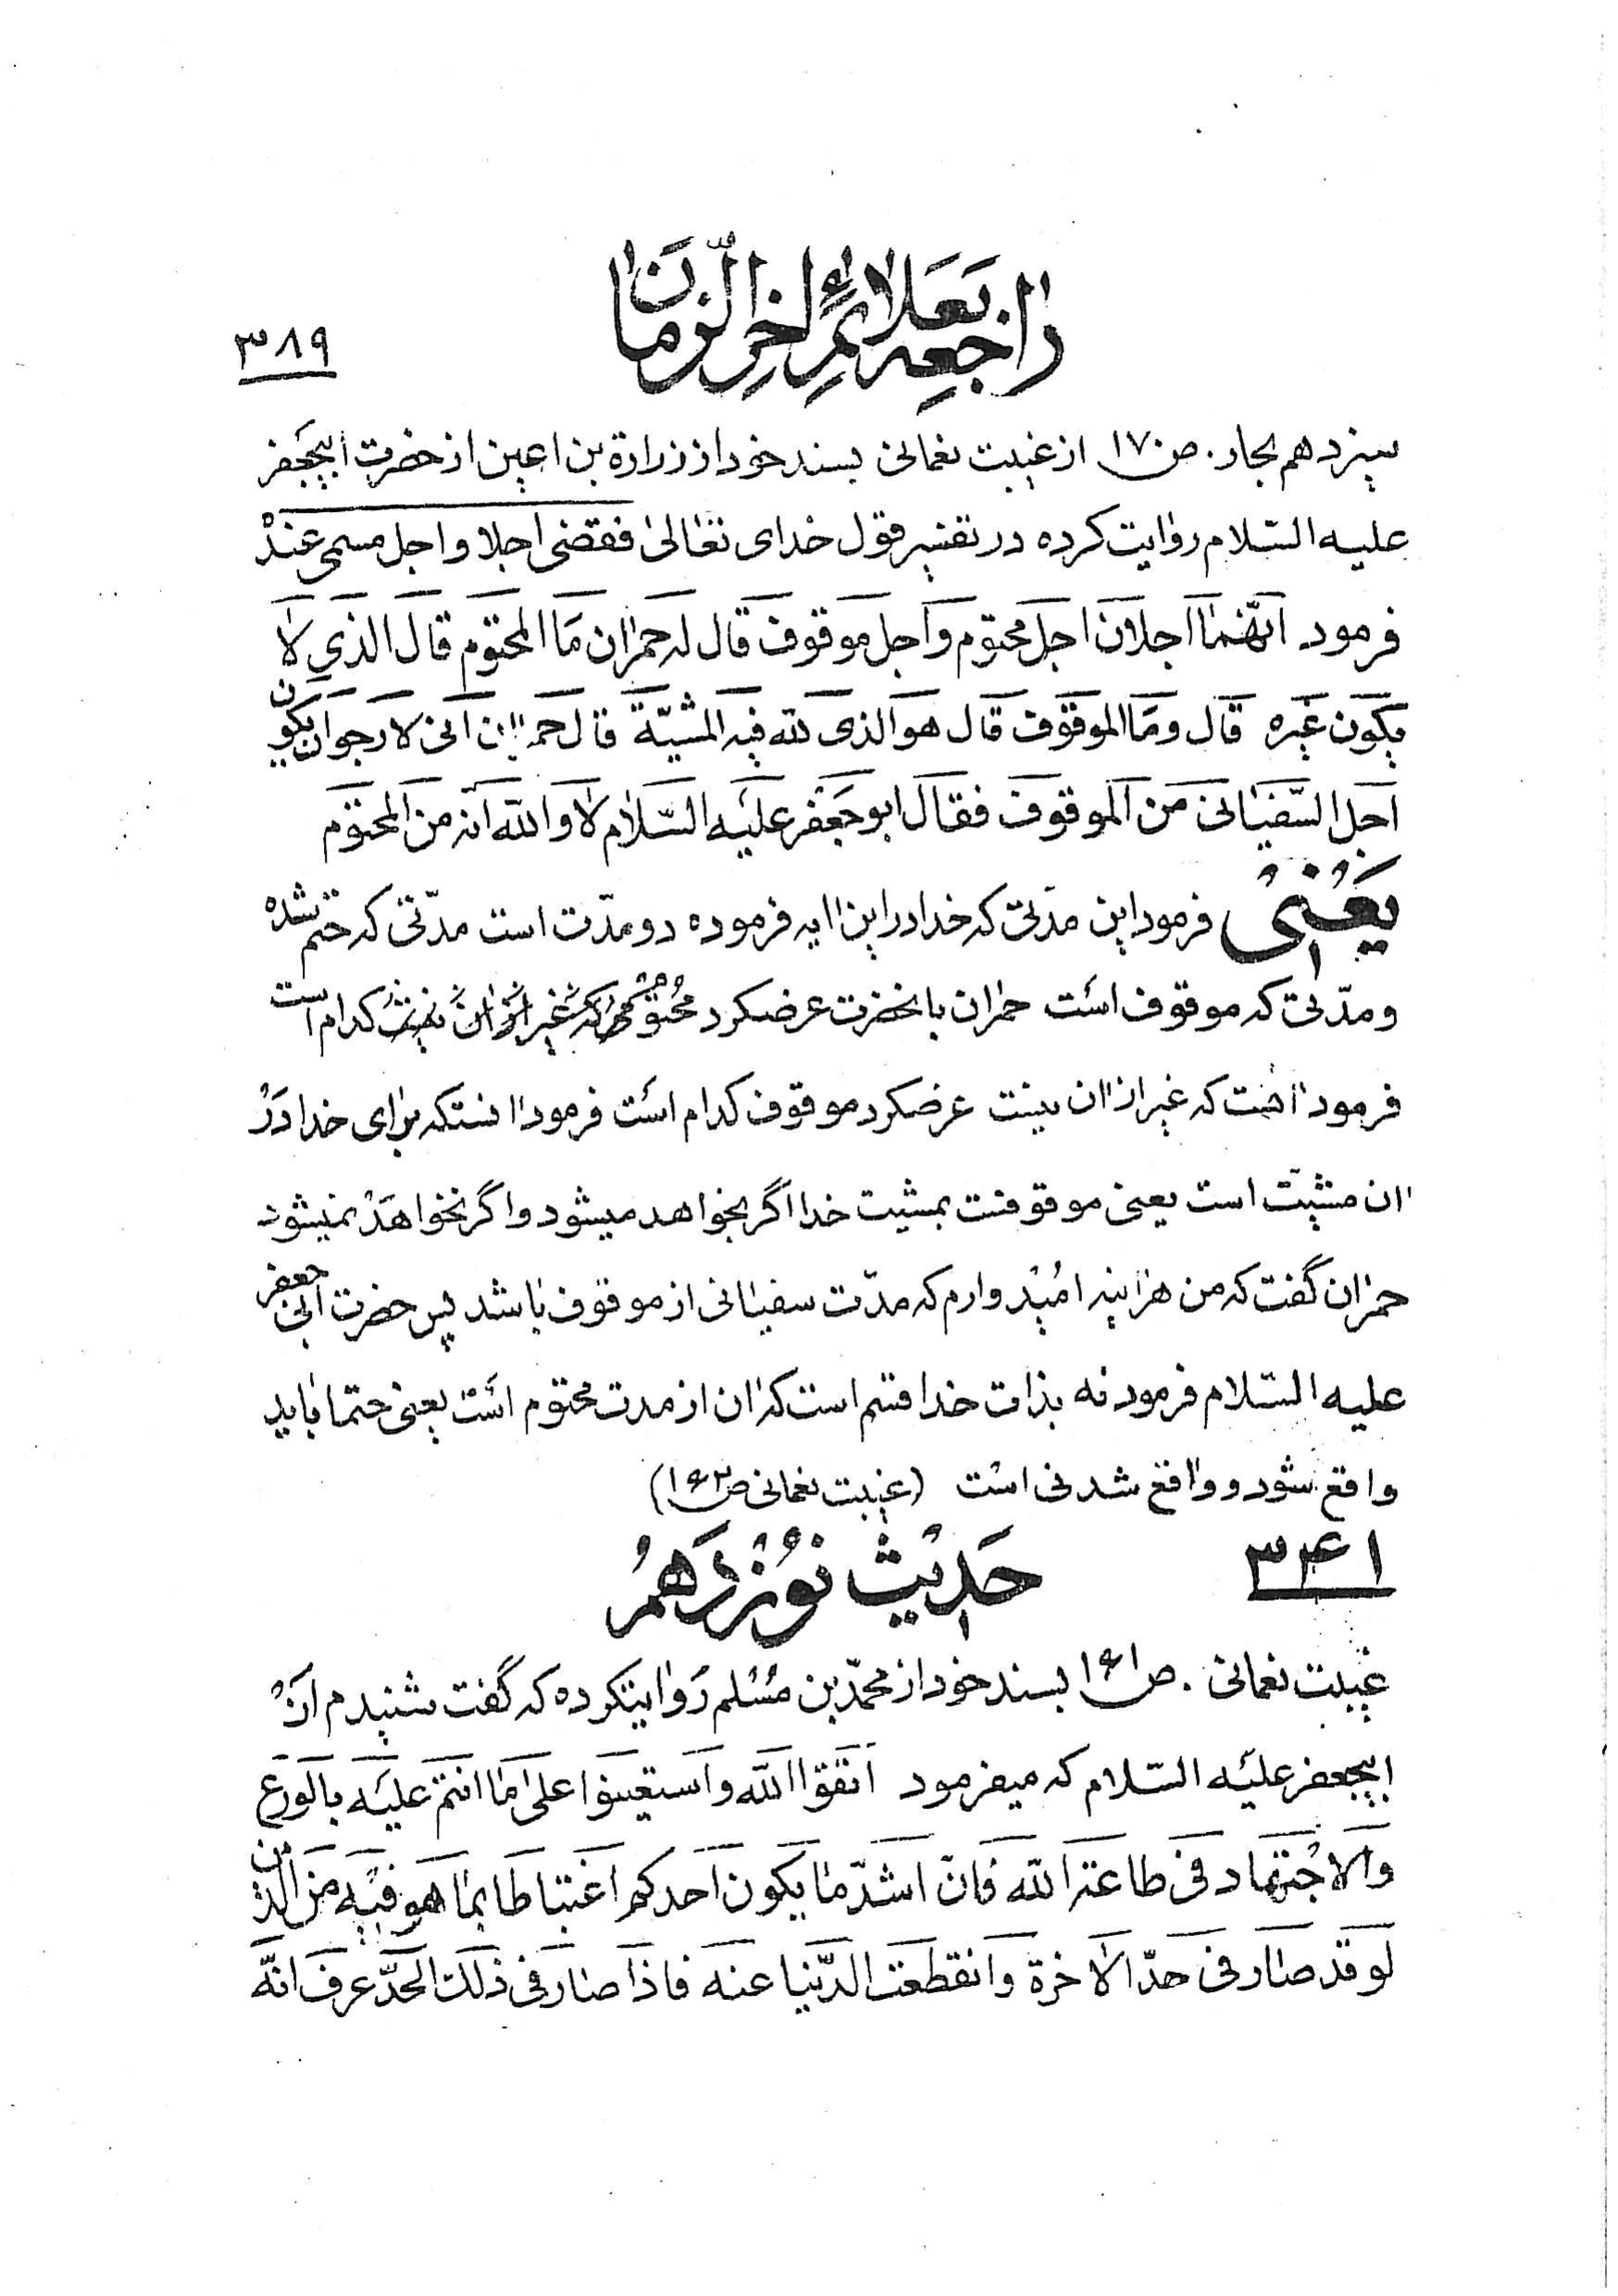 راجعه بعلائم اخرالزمان
۳۸۹
سیزدهم بحار. ص۱۷۰ از غیبت نعمانی بسند خود از زرارة بن اعین از حضرت ابیجعفر
علیه السّلام روایت کرده در تفسیر قول خدای تعالیٰ فقضی اجلا و اجل مسمی عنده
فرمود انّهما اجلان اجل محتوم و اجل موقوف قال له حمران ما المحتوم قال الذی لا
یکون غیره قال و ما الموقوف قال هو الذی لله فیه المشیّة قال حمران انی لا رجو ان یکون
اجل السّفیانی من الموقوف فقال ابو جعفر علیه السّلام لا و الله انه من المحتوم
یعنی فرمود این مدّتی که خدا در این ایه فرموده دو مدّت است مدّتی که حتم شده
و مدّتی که موقوف است حمران بانحضرت عرضکرد محتومی که غیر از ان نیست کدام است
فرمود انست که غیر از ان نیست عرضکرد موقوف کدام است فرمود انستکه برای خدا در
ان مشیّت است یعنی موقوفست بمشیت خدا اگر بخواهد میشود و اگر نخواهد نمیشود
حمران گفت که من هراینه امیدوارم که مدّت سفیانی از موقوف باشد پس حضرت ابی جعفر
علیه السّلام فرمود نه بذات خدا قسم است که ان از مدت محتوم است یعنی حتما باید
واقع شود و واقع شدنی است (غیبت نعمانی ص۱۶۳)
۳۴۱
حدیث نوزدهم
غیبت نعمانی. ص۱۶۱ بسند خود از محمّد بن مسلم روایتکرده که گفت شنیدم از
ابیجعفر علیه السّلام که میفرمود اتقوا الله و استعینوا علیٰ ما انتم علیه بالورع
والاجتهاد فی طاعة الله فانّ اشدّ ما یکون احدکم اغتباطا بما هو فیه من الدین
لو قد صار فی حدّ الاخرة و انقطعت الدّنیا عنه فاذا صار فی ذلک الحدّ عرف انّه